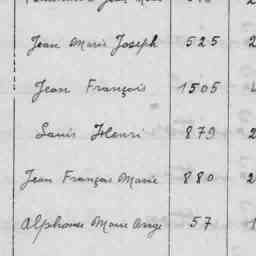 Jean Marie Joseph 525 2
Jean François 1505
Louis Henri 879 2
Jean François Marie 880 2
Alphonse Marie Ange 57 1